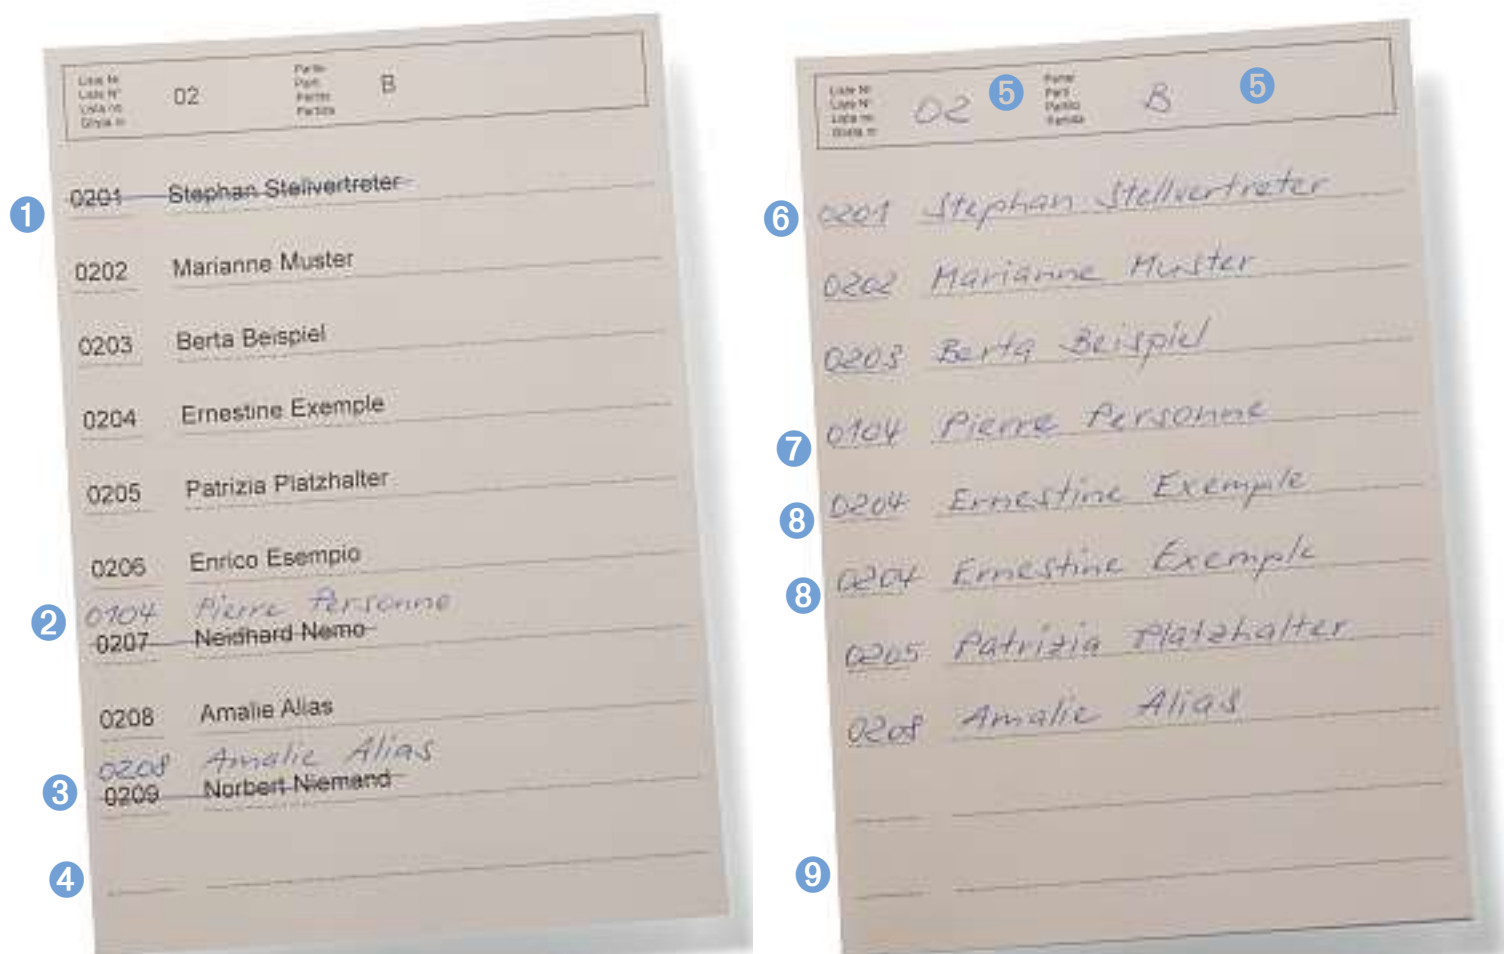 Liste Nr.
Liste N°
Lista no.
Glista nr.
02
Partei
Parti
Partito
Partida
B
1
0201 Stephan Stellvertreter
0202 Marianne Muster
0203 Berta Beispiel
0204 Ernestine Exemple
0205 Patrizia Platzhalter
0206 Enrico Esempio
0104 Pierre Personne
2
0207 Neidhard Nemo
0208 Amalie Alias
0208 Amalie Alias
3
0209 Norbert Niemand
4
Liste Nr.
Liste N°
Lista no.
Glista nr.
02
5
Partei
Parti
Partito
Partida
B
5
6
0201 Stephan Stellvertreter
0202 Marianne Muster
0203 Berta Beispiel
7
0104 Pierre Personne
8
0204 Ernestine Exemple
8
0204 Ernestine Exemple
0205 Patrizia Platzhalter
0208 Amalie Alias
9